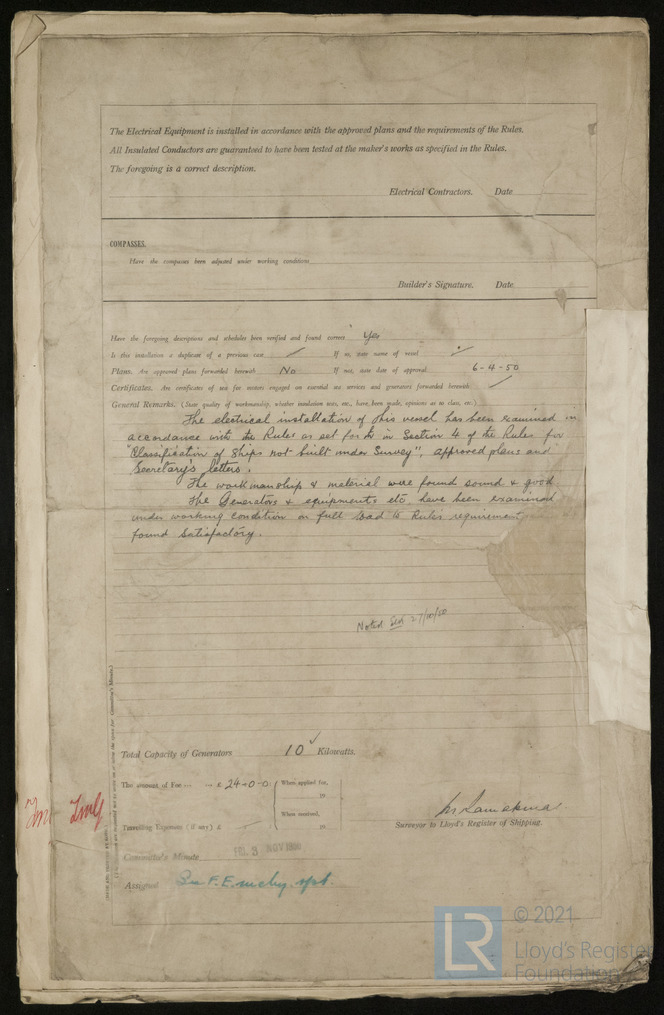 The Electrical Equipment is installed in accordance with the approved plans and the requirements of the Rules.
All Insulated Conductors are guaranteed to have been tested at the maker's works as specified in the Rules.
The foregoing is a correct description.
Electrical Contractors. Date
COMPASSES.
Have the compasses been adjusted under working conditions
Builder's Signature. Date
Have the foregoing descriptions and schedules been verified and found correct Yes
Is this installation a duplicate of a previous case If so, state name of vessel
Plans. Are approved plans forwarded herewith No If not, state date of approval 6-4-50
Certificates. Are certificates of test for motors engaged on essential sea services and generators forwarded herewith
General Remarks. (State quality of workmanship, whether insulation tests, etc., have been made, opinions as to class, etc.)
The electrical installation of this vessel has been examined in
accordance with the Rules as set forth in Section 4 of the Rules for
"Classification of Ships not built under Survey", approved plans and
Secretary's letters.
The workmanship & material were found sound & good.
The Generators & equipments etc have been examined
under working condition on full load to Rules requirement
found satisfactory.
Noted 27/10/50
Total Capacity of Generators 10 Kilowatts.
The amount of Fee ... £ 24-0-0 When applied for,
19
When received,
Travelling Expenses (if any) £ 19
Surveyor to Lloyd's Register of Shipping.
Committee's Minute FRI. 3 NOV 1950
Assigned See F.E. mchy. rpt.
LR © 2021
Lloyd's Register
Foundation